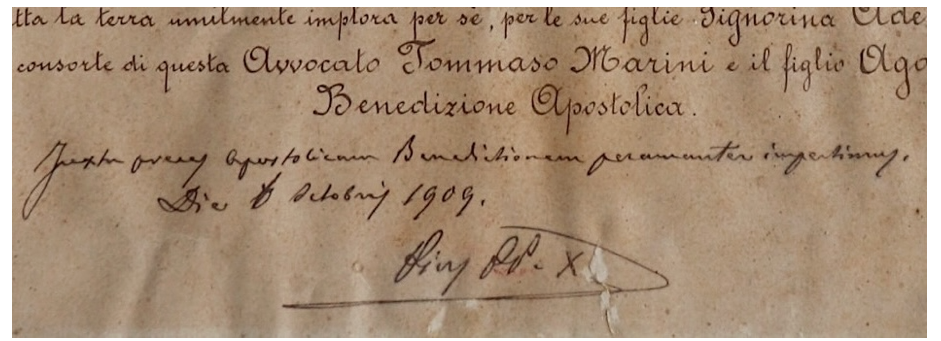 tta la terra umilmente implora per sè, per le sue figlie Signorina Ade
consorte di questa Avvocato Tommaso Marini e il figlio Ago
Benedizione Apostolica.
Juxta preces Apostolicam Benedictionem peramanter impertimus.
Die 6 Octobris 1909.
Pius PP. X